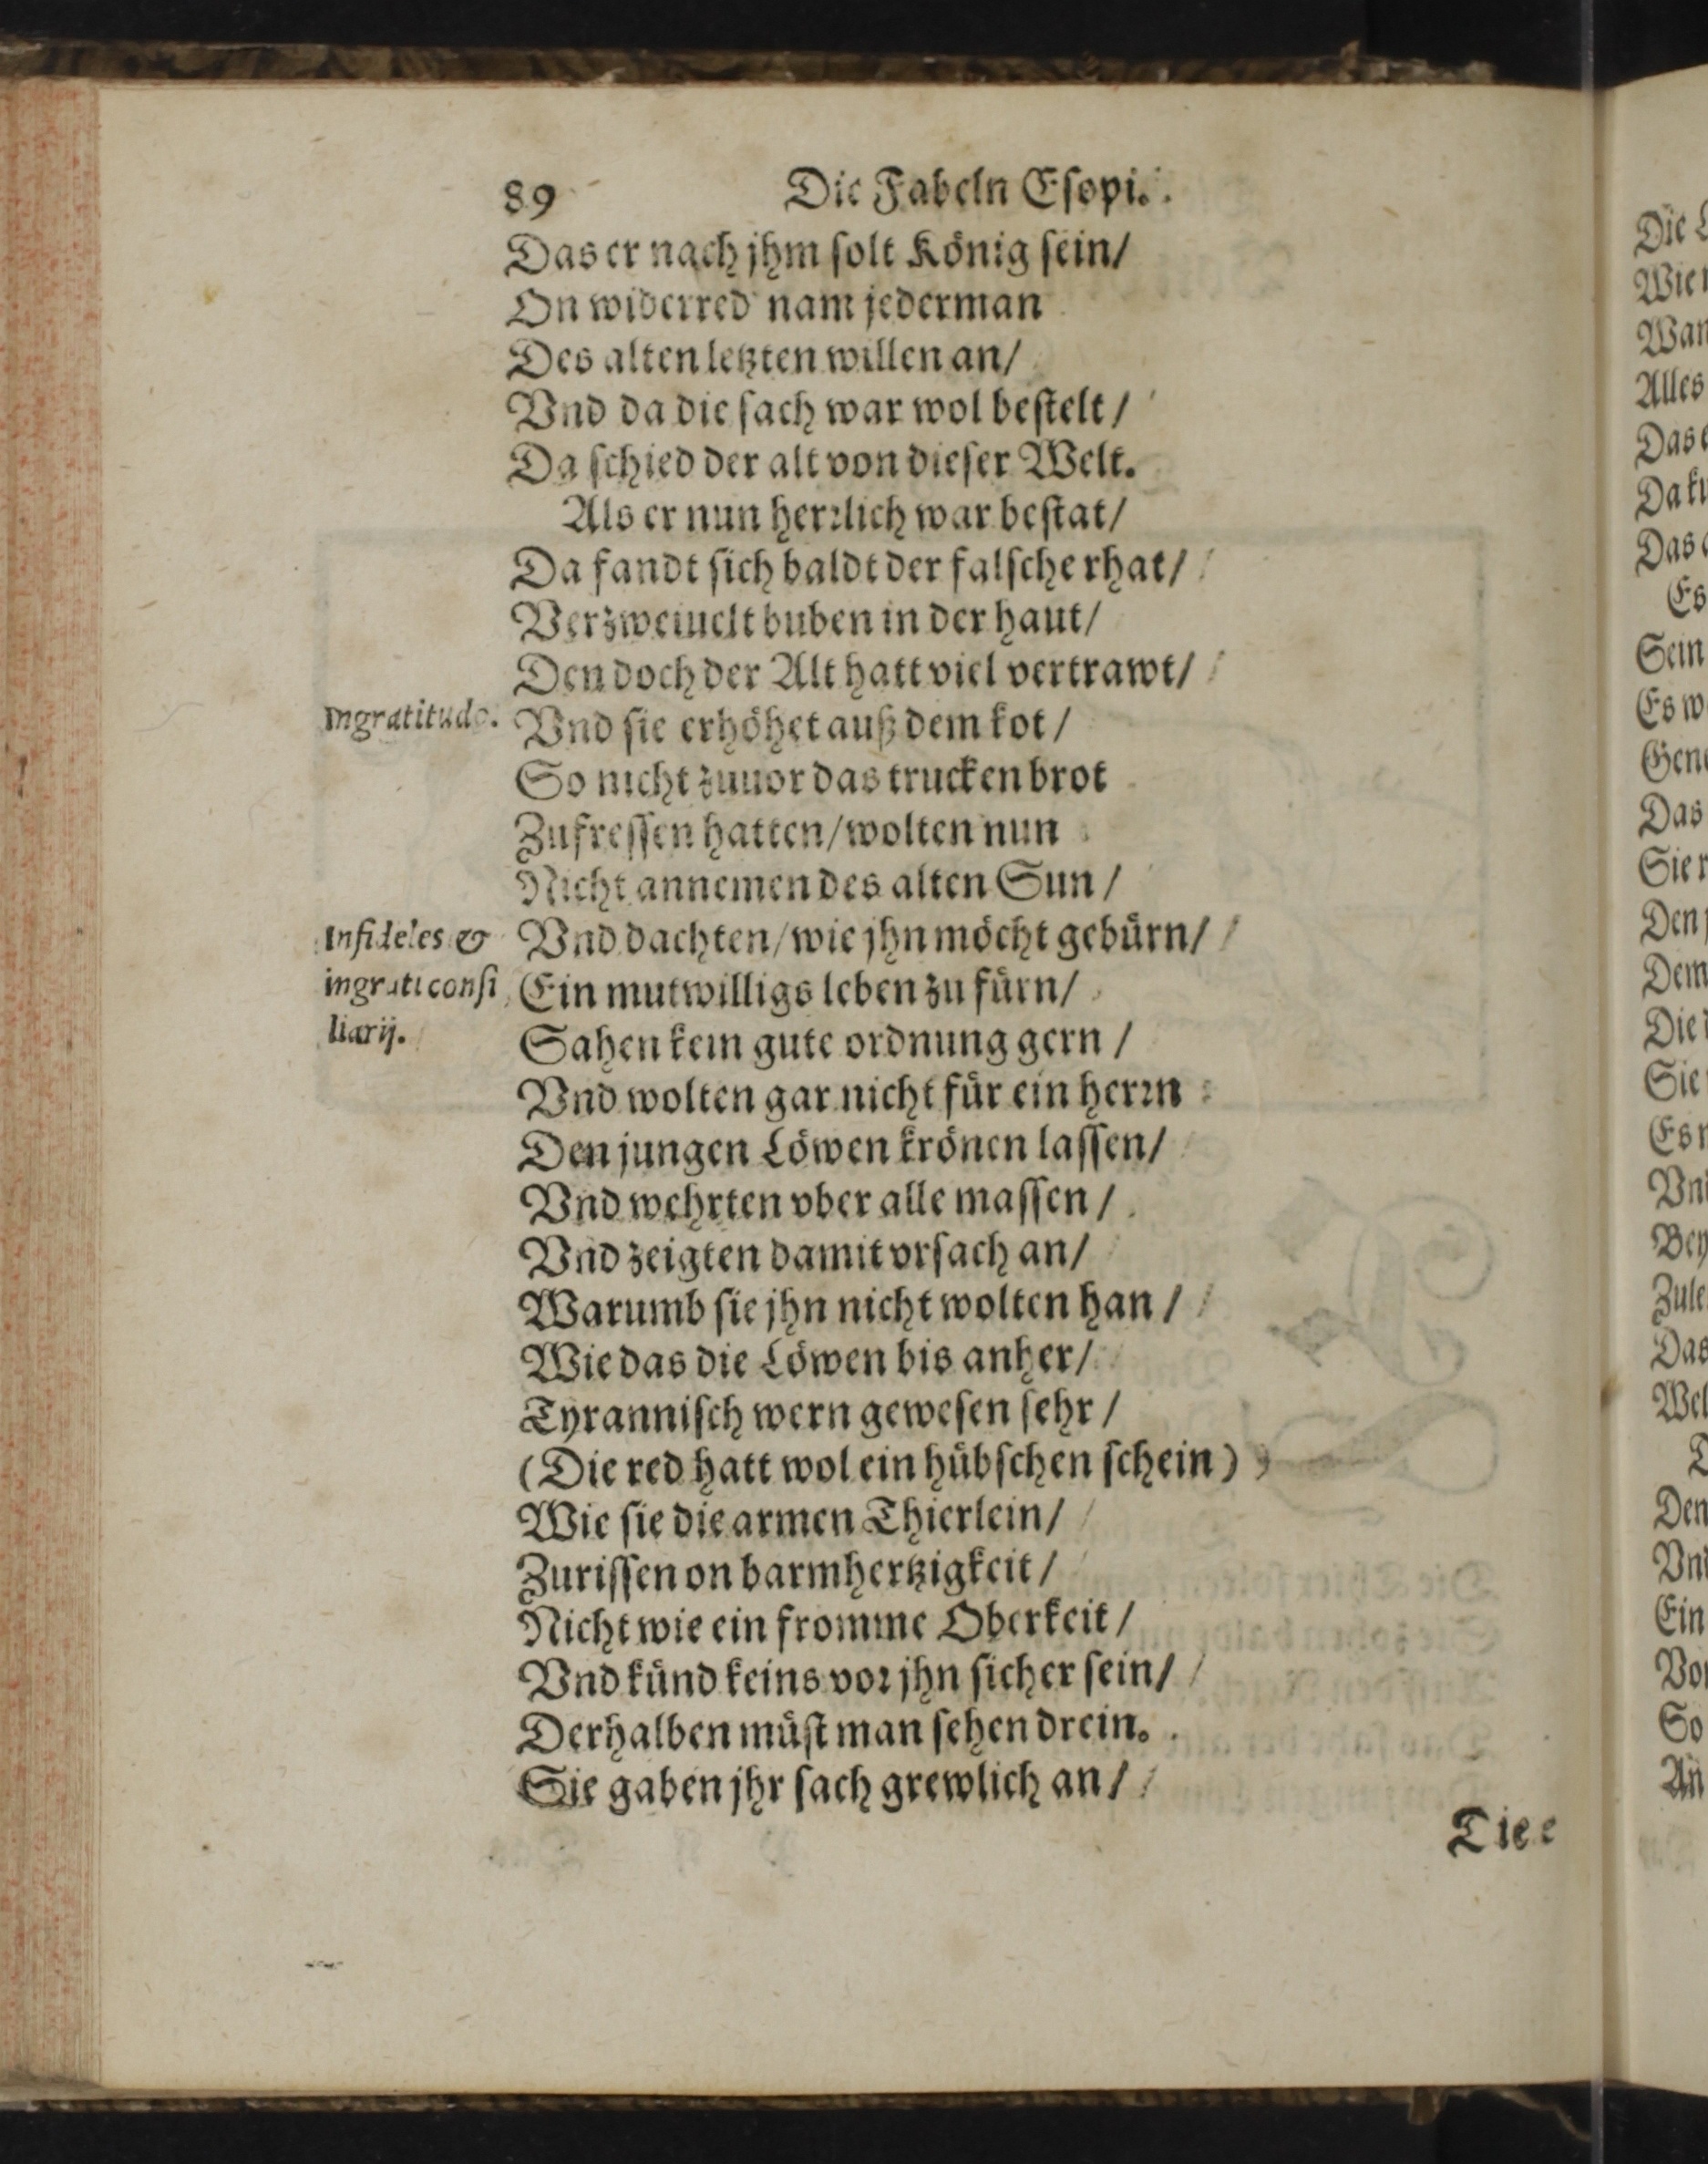 89 Die Fabeln Esopi.
Das er nach jhm solt König sein/
On widerred nam jederman
Des alten letzten willen an/
Vnd da die sach war wol bestelt/
Da schied der alt von dieser Welt.
Als er nun herrlich war bestat/
Da fandt sich baldt der falsche rhat/
Verzweiuelt buben in der haut/
Den doch der Alt hatt viel vertrawt/
Ingratitudo.
Vnd sie erhöhet auß dem kot/
So nicht zuuor das trucken brot
Zufressen hatten/wolten nun
Nicht annemen des alten Sun/
Infideles &
ingrati consi
liarij.
Vnd dachten/wie jhn möcht gebürn/
Ein mutwilligs leben zu fürn/
Sahen kein gute ordnung gern/
Vnd wolten gar nicht für ein herrn
Den jungen Löwen krönen lassen/
Vnd wehrten vber alle massen/
Vnd zeigten damit vrsach an/
Warumb sie jhn nicht wolten han/
Wie das die Löwen bis anher/
Tyrannisch wern gewesen sehr/
(Die red hatt wol ein hübschen schein)
Wie sie die armen Thierlein/
Zurissen on barmhertzigkeit/
Nicht wie ein fromme Oberkeit/
Vnd künd keins vor jhn sicher sein/
Derhalben müst man sehen drein.
Sie gaben jhr sach grewlich an/
Die